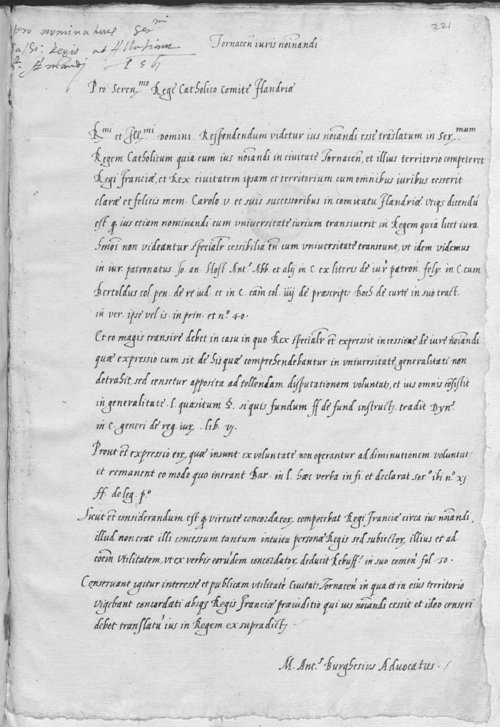 pro nominatione Ser.mi
Regis ad
221
Tornacen iuris noīandi
Pro Seren.mo Rege Catholico Comite Flandriæ
R.mi et Ill.mi Domini. Respondendum videtur ius noīandi esse translatum in Ser.mum
Regem Catholicum quia cum ius noīandi in ciuitate Tornacen, et illius territorio competeret
Regi Franciæ, et Rex ciuitatem ipsam et territorium cum omnibus iuribus cesserit
claræ et felicis mem. Carolo v. et suis successoribus in comitatu Flandriæ, dicendū
est q ius etiam nominandi cum vniuersitate iurium transiuerit in Regem quia licet iura
non videantur specialr cessibilia tn cum vniuersitate transeunt, vt idem videmus
in iur. patronatus Io. an. Host. Ant.s Abb. et alij in C. ex literis de iur patron. fely. in C. cum
Bertoldus col. pen. de re iud. et in C. cām col. iiij de præscript. Roch. de curte in suo tract.
in ver. ipse vel is. in prin. et n.o 40.
Et eo magis transire debet in casu in quo Rex specialr et expressit in cessione de iure noīandi
quæ expressio cum sit de his quæ comprehendebantur in vniuersitate, generalitati non
detrahit, sed censetur apposita ad tollendam disputationem voluntat, et ius omnis
in generalitate. l. quæsitum §. si quis fundum ff de fund. instruct. tradit Dyn.
in c. generi de reg. iur. lib. vj.
Prout et expressio eor, quæ insunt ex voluntate non operantur ad diminutionem voluntat
et remanent eo modo quo inerant Bar. in l. hæc verba in fi. et declarat ibi n.o xj
ff. de leg. p.o
Sicut et considerandum est q virtute concordator, competebat Regi Franciæ circa ius noīandi,
illud non erat illi concessum tantum intuitu personæ Regis sed subiector, illius et ad
coem vtilitatem, vt ex verbis eorūdem concordator, deducit Rebuff. in suo comen fol. 10.
Conseruant igitur interesse et publicam vtilitatē Ciuitat Tornacen in qua et in eius territorio
vigebant concordati absq Regis Franciæ præiuditio qui ius noīandi cessit et ideo censeri
debet translatū ius in Regem ex supradict.
M. Ant.s Burghesius Aduocatus.